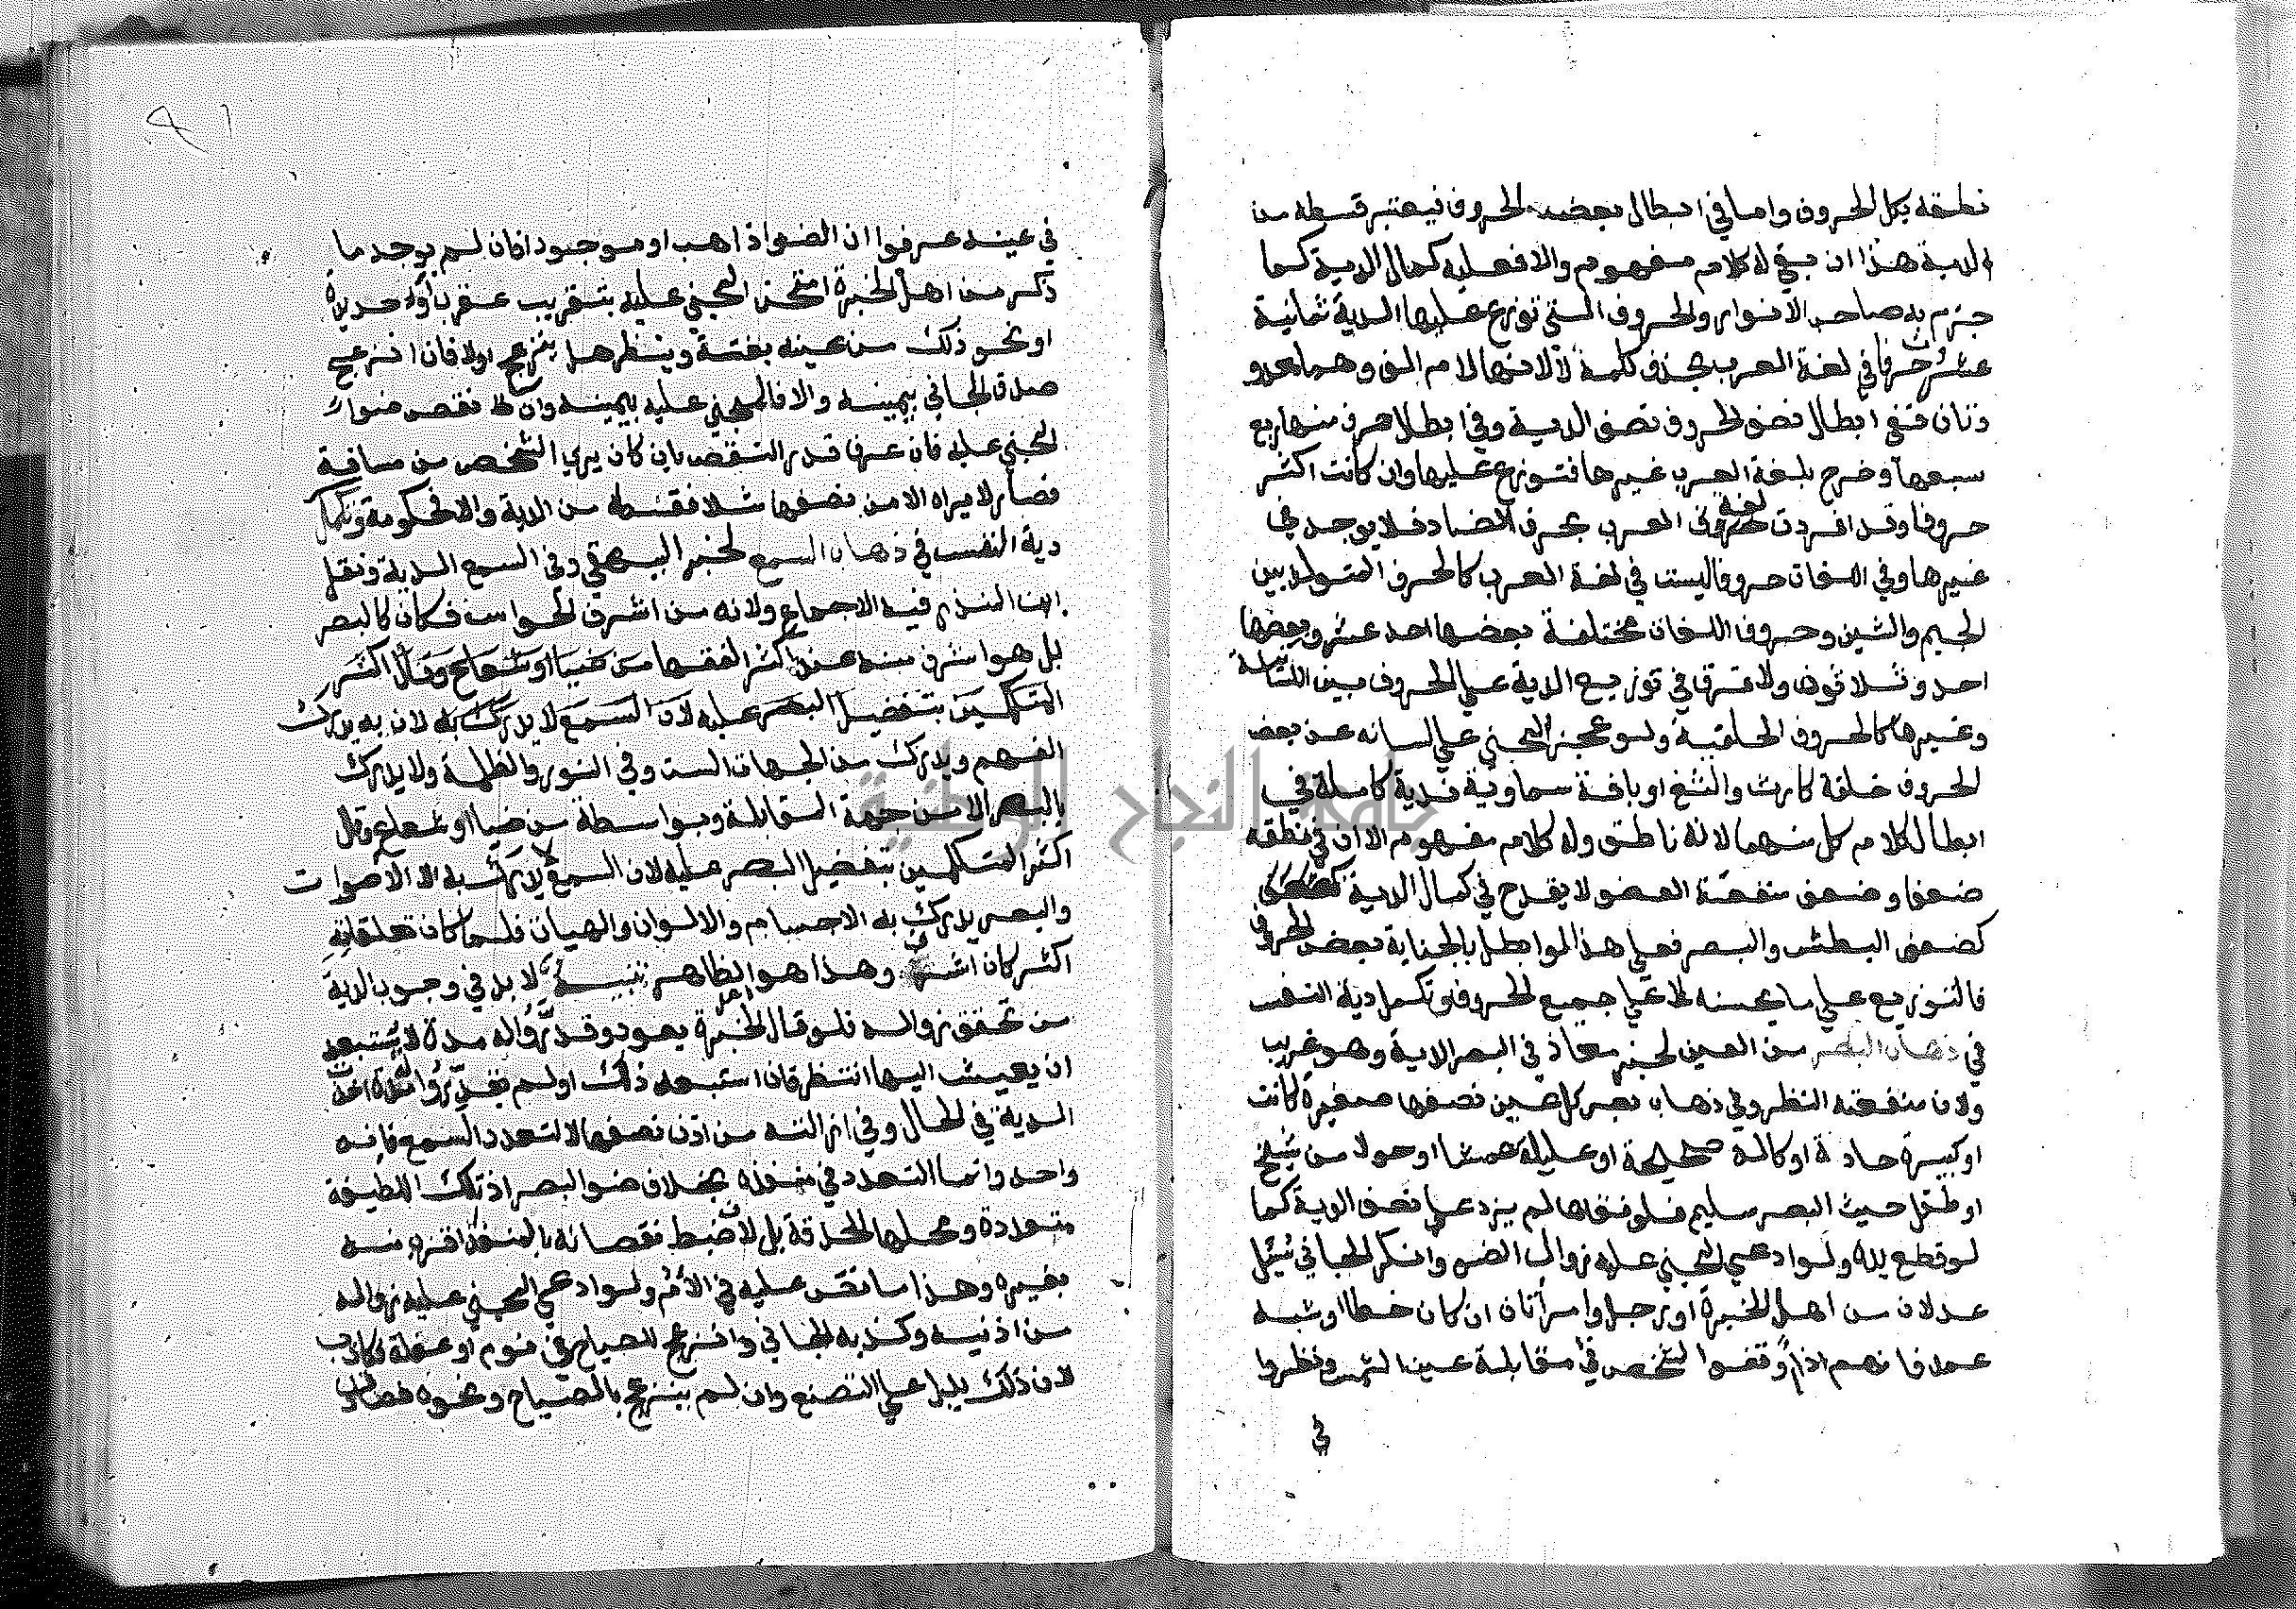 نطقه بكل الحروف واما في ابطال بعض الحروف فيعتبر قسطه من
الدية هذا ان بقي له كلام مفهوم والا فعليه كمال الدية كما
جزم به صاحب الانوار والحروف التي توزع عليها الدية ثمانية
عشر حرفا في لغة العرب بحذف كلمة لا لانها لام الف وهما معدو
دتان ففي ابطال نصف الحروف نصف الدية وفي ابطال حرف منها ربع
سبعها وخرج بلغة العرب غيرها فتوزع عليها وان كانت اكثر
حروفا وقد افردت لغة العرب بحرف الضاد فلا يوجد في
غيرها وفي اللغات حروفا ليست في لغة العرب كالحرف المتولد بين
الجيم والشين وحروف اللغات مختلفة بعضها احد عشر وبعضها
احد وثلاثون ولا فرق في توزيع الدية على الحروف بين اللسانية
وغيرها كالحروف الحلقية ولو عجز المجني على لسانه عن بعض
الحروف خلقة كارت والثغ او بافة سماوية فدية كاملة في
ابطال كلام كل منهما لانه ناطق وله كلام مفهوم الا ان في نطقه
ضعفا وضعف منفعة العضو لا يقدح في كمال الدية
كضعف البطش والبصر فعلى هذا لو ابطل بالجناية بعض الحروف
فالتوزيع على ما يحسنه لا على جميع الحروف وتكمل دية النفس
في ذهاب البصر من العين لخبر معاذ في البصر الدية وهو غريب
ولان منفعته النظر وفي ذهاب بصر كل عين نصفها صغيرة كانت
او كبيرة حادة او كالة صحيحة او عليلة عمشا او حولا من شيخ
او طفل حيث البصر سليم فلو فقاها لم يزد على نصف الدية كما
لو قطع يده ولو ادعى المجني عليه زوال الضو وانكر الجاني سئل
عدلان من اهل الخبرة او رجل وامرأتان ان كان خطا او شبه
عمد فانهم اذا وقفوا الشخص في مقابلة عين الشمس ونظروا
في
في عينه عرفوا ان الضو ذاهب او موجود افان لم يوجد ما
ذكر من اهل الخبرة امتحن المجني عليه بتقريب عقرب او حديدة
او نحو ذلك من عينه بغتة وينظر هل ينزعج او لا فان انزعج
صدق الجاني بيمينه والا فالمجني عليه بيمينه وان نقص ضوا
المجني عليه فان عرف قدر النقص بان كان يري الشخص من مسافة
فصار لا يراه الا من نصفها مثلا فقسطه من الدية والا فحكومة وتكمل
دية النفس في ذهاب السمع لخبر البيهقي وفي السمع الدية ونقل
ابن المنذر فيه الاجماع ولانه من اشرف الحواس فكان كالبصر
بل هو اشرف منه عند اكثر الفقها من ضيا او شعاع وقال اكثر
المتكلمين بتفضيل البصر عليه لان السمع لا يدرك به لان به يدرك
الفهم ويدرك من الجهات الست وفي النور والظلمة ولا يدرك
بالبصر الا من جهة المقابلة وبواسطة من ضيا او شعاع وقال
اكثر المتكلمين بتفضيل البصر عليه لان السمع لا يدرك به الا الاصوات
والبصر يدرك به الاجسام والالوان والهيات فلما كان تعلقاته
اكثر كان اشرف وهذا هو الظاهر تنبيه لا بد في وجوب الدية
من تحقق زواله فلو قال اهل الخبرة يعود وقدروا له مدة لا يستبعد
ان يعيش اليها انتظر فان استبعد ذلك او لم يقدروا مدة اخذت
الدية في الحال وفي ازالته من اذن نصفها لا لتعدد السمع فانه
واحد وانما التعدد في منفذه بخلاف ضو البصر اذ تلك اللطيفة
متعددة ومحلها الحدقة بل لا ضبط نقصانه بالمنفذ اقرب منه
بغيره وهذا ما نص عليه في الام ولو ادعى المجني عليه زواله
من اذنيه وكذبه الجاني وانزعج للصياح في نوم او غفلة فكاذب
لان ذلك يدل على التصنع وان لم ينزعج بالصياح ونحوه فصادق